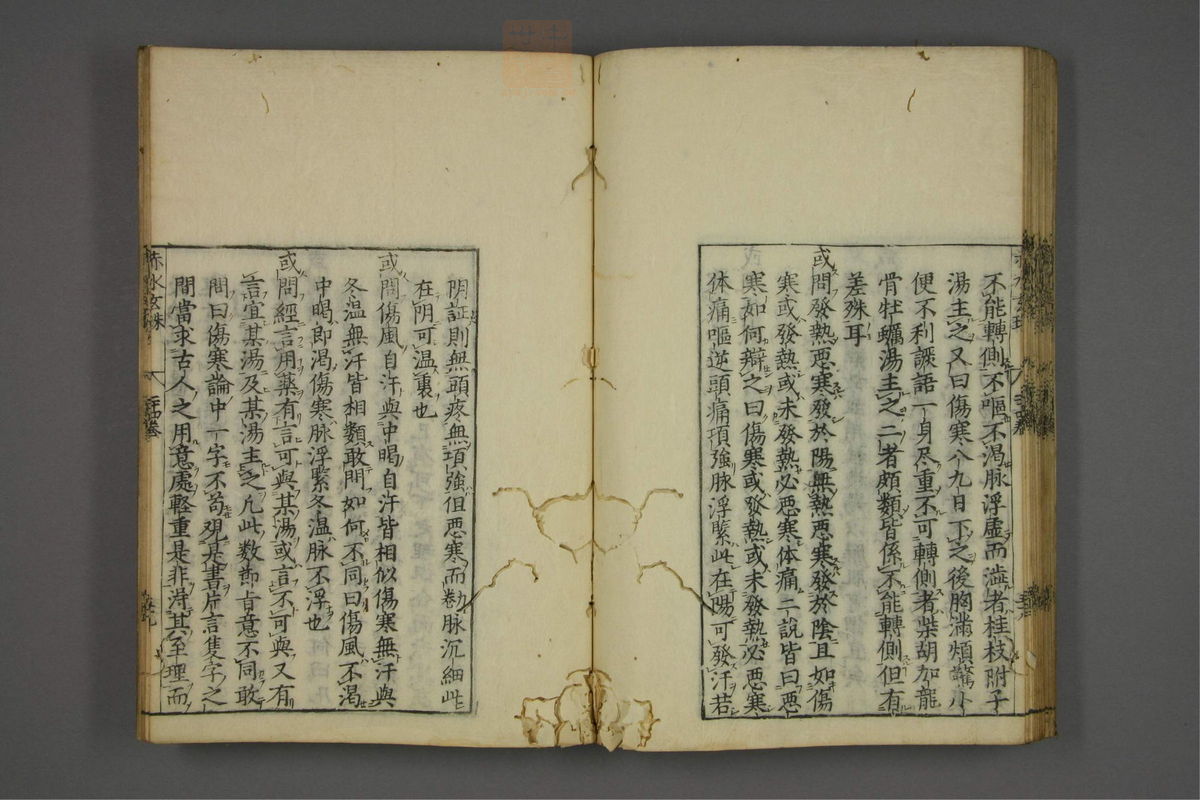 不能轉側不嘔不渴脉浮虛而澁者桂枝附子
湯主之又曰傷寒八九日下之後胸滿煩驚小
便不利譫語一身尽重不可轉側者柴胡加龍
骨牡蠣湯主之二者頗類皆係不能轉側但有
差殊耳
或問發熱惡寒發於陽無熱惡寒發於陰且如傷
寒或發熱或未發熱必惡寒体痛二說皆曰惡
寒如何辯之曰傷寒或發熱或未發熱必惡寒
体痛嘔逆頭痛項強脉浮緊此在陽可發汗若
阴証則無頭疼無項強但惡寒而踡脉沉細此
在阴可温裏也
或問傷風自汗與中暍自汗皆相似傷寒無汗與
冬温無汗皆相類敢問如何不同曰傷風不渴
中暍即渴傷寒脉浮緊冬温脉不浮也
或問經言用藥有言可與某湯或言不可與又有
言宜某湯及某湯主之凡此数節旨意不同敢
問曰傷寒論中一字不苟观是書片言隻字之
間當求古人之用意處輕重是非淂其至理而
赤水玄珠